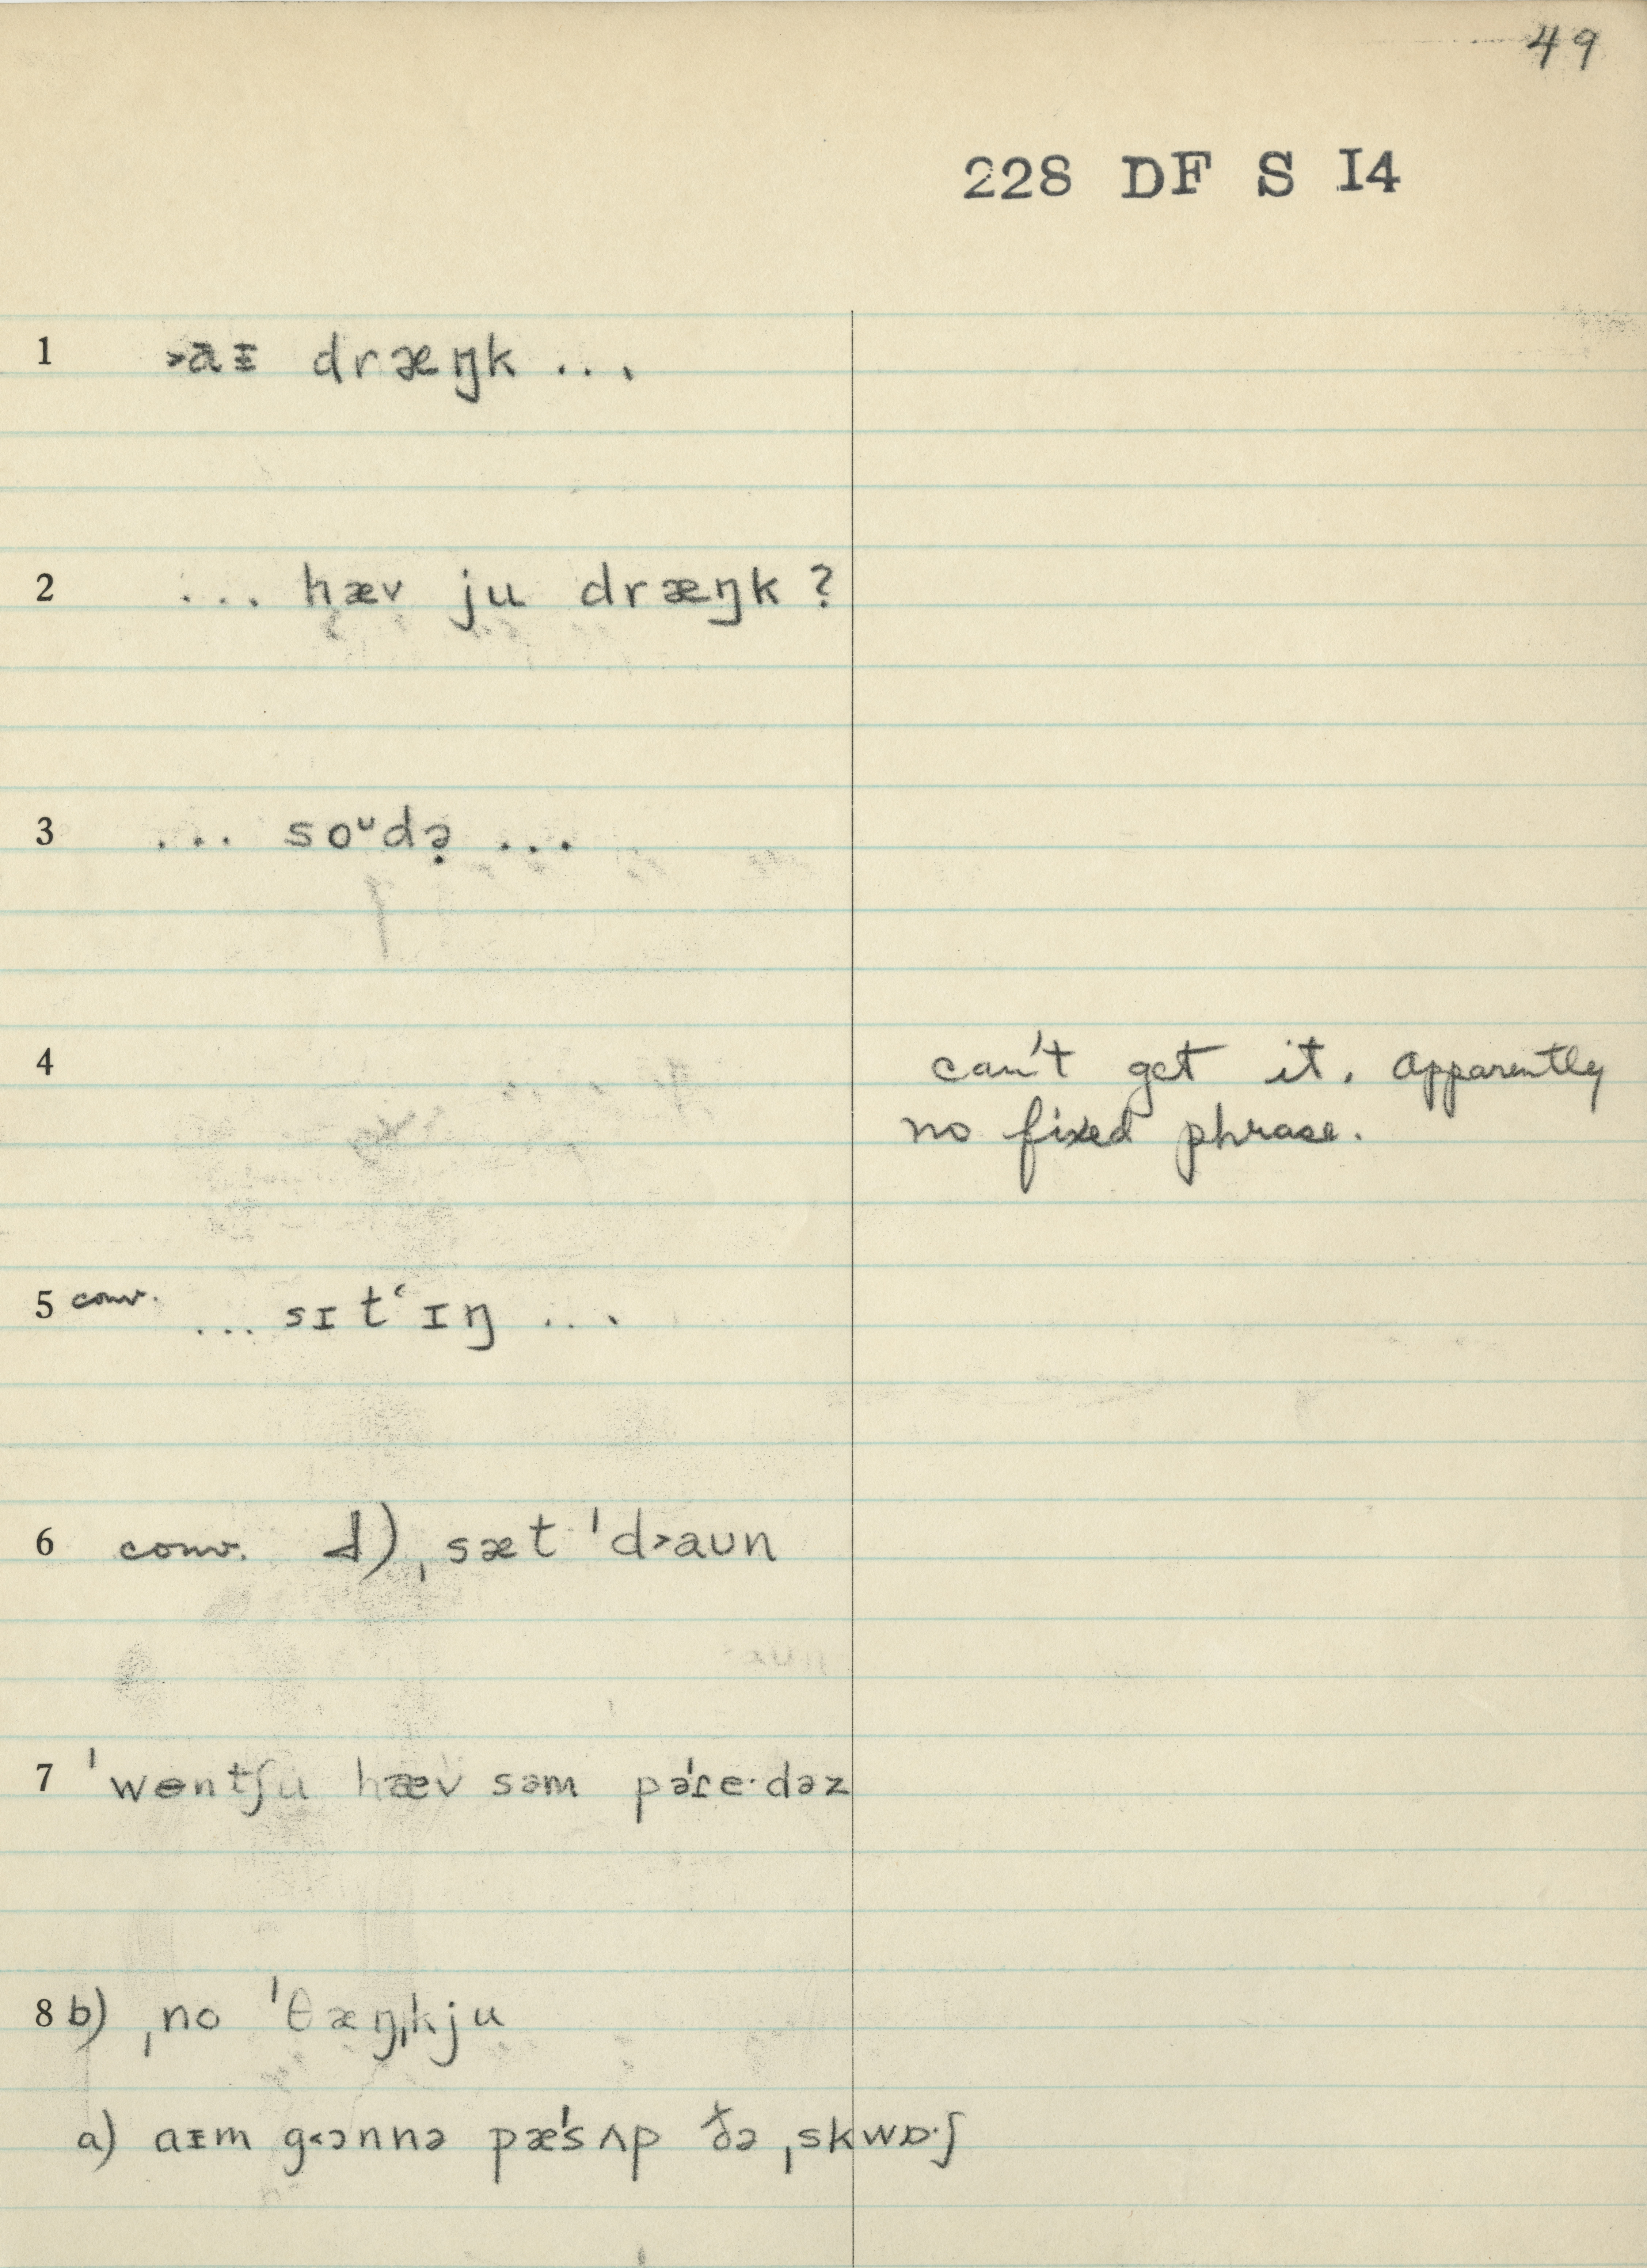 49
228 DF S I4
1 >aɪ dræŋk ...
2 ... hæv ju dræŋk ?
3 ... soᶷdə̣ ...
4 can't get it. Apparently
no fixed phrase.
5 conv. ... sɪtʻɪŋ ...
6 conv. d) ˌsæt ˈd>aʊn
7 ˈwɵntʃu hæv səm pəˈɾe·dəz
8 b) ˌno ˈθæŋˌkju
a) aɪm g<ɔnnə pæˈsʌp ðə ˌskwɒ·ʃ